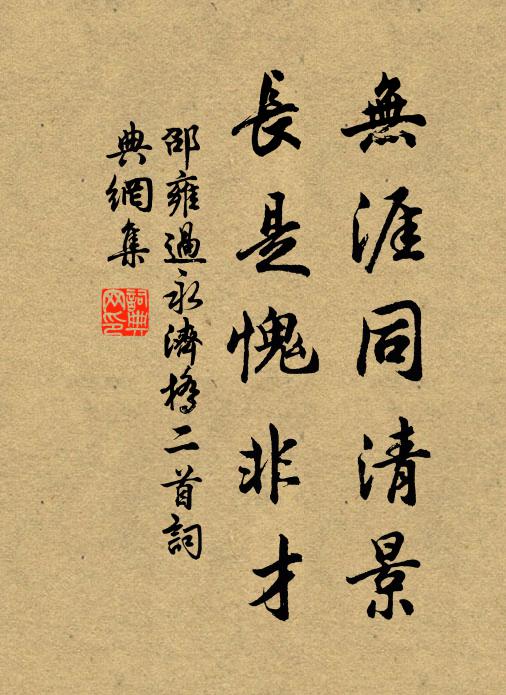 無涯同清景
長是愧非才
邵雍過永濟橋二首詞
典網集
詞典
网印